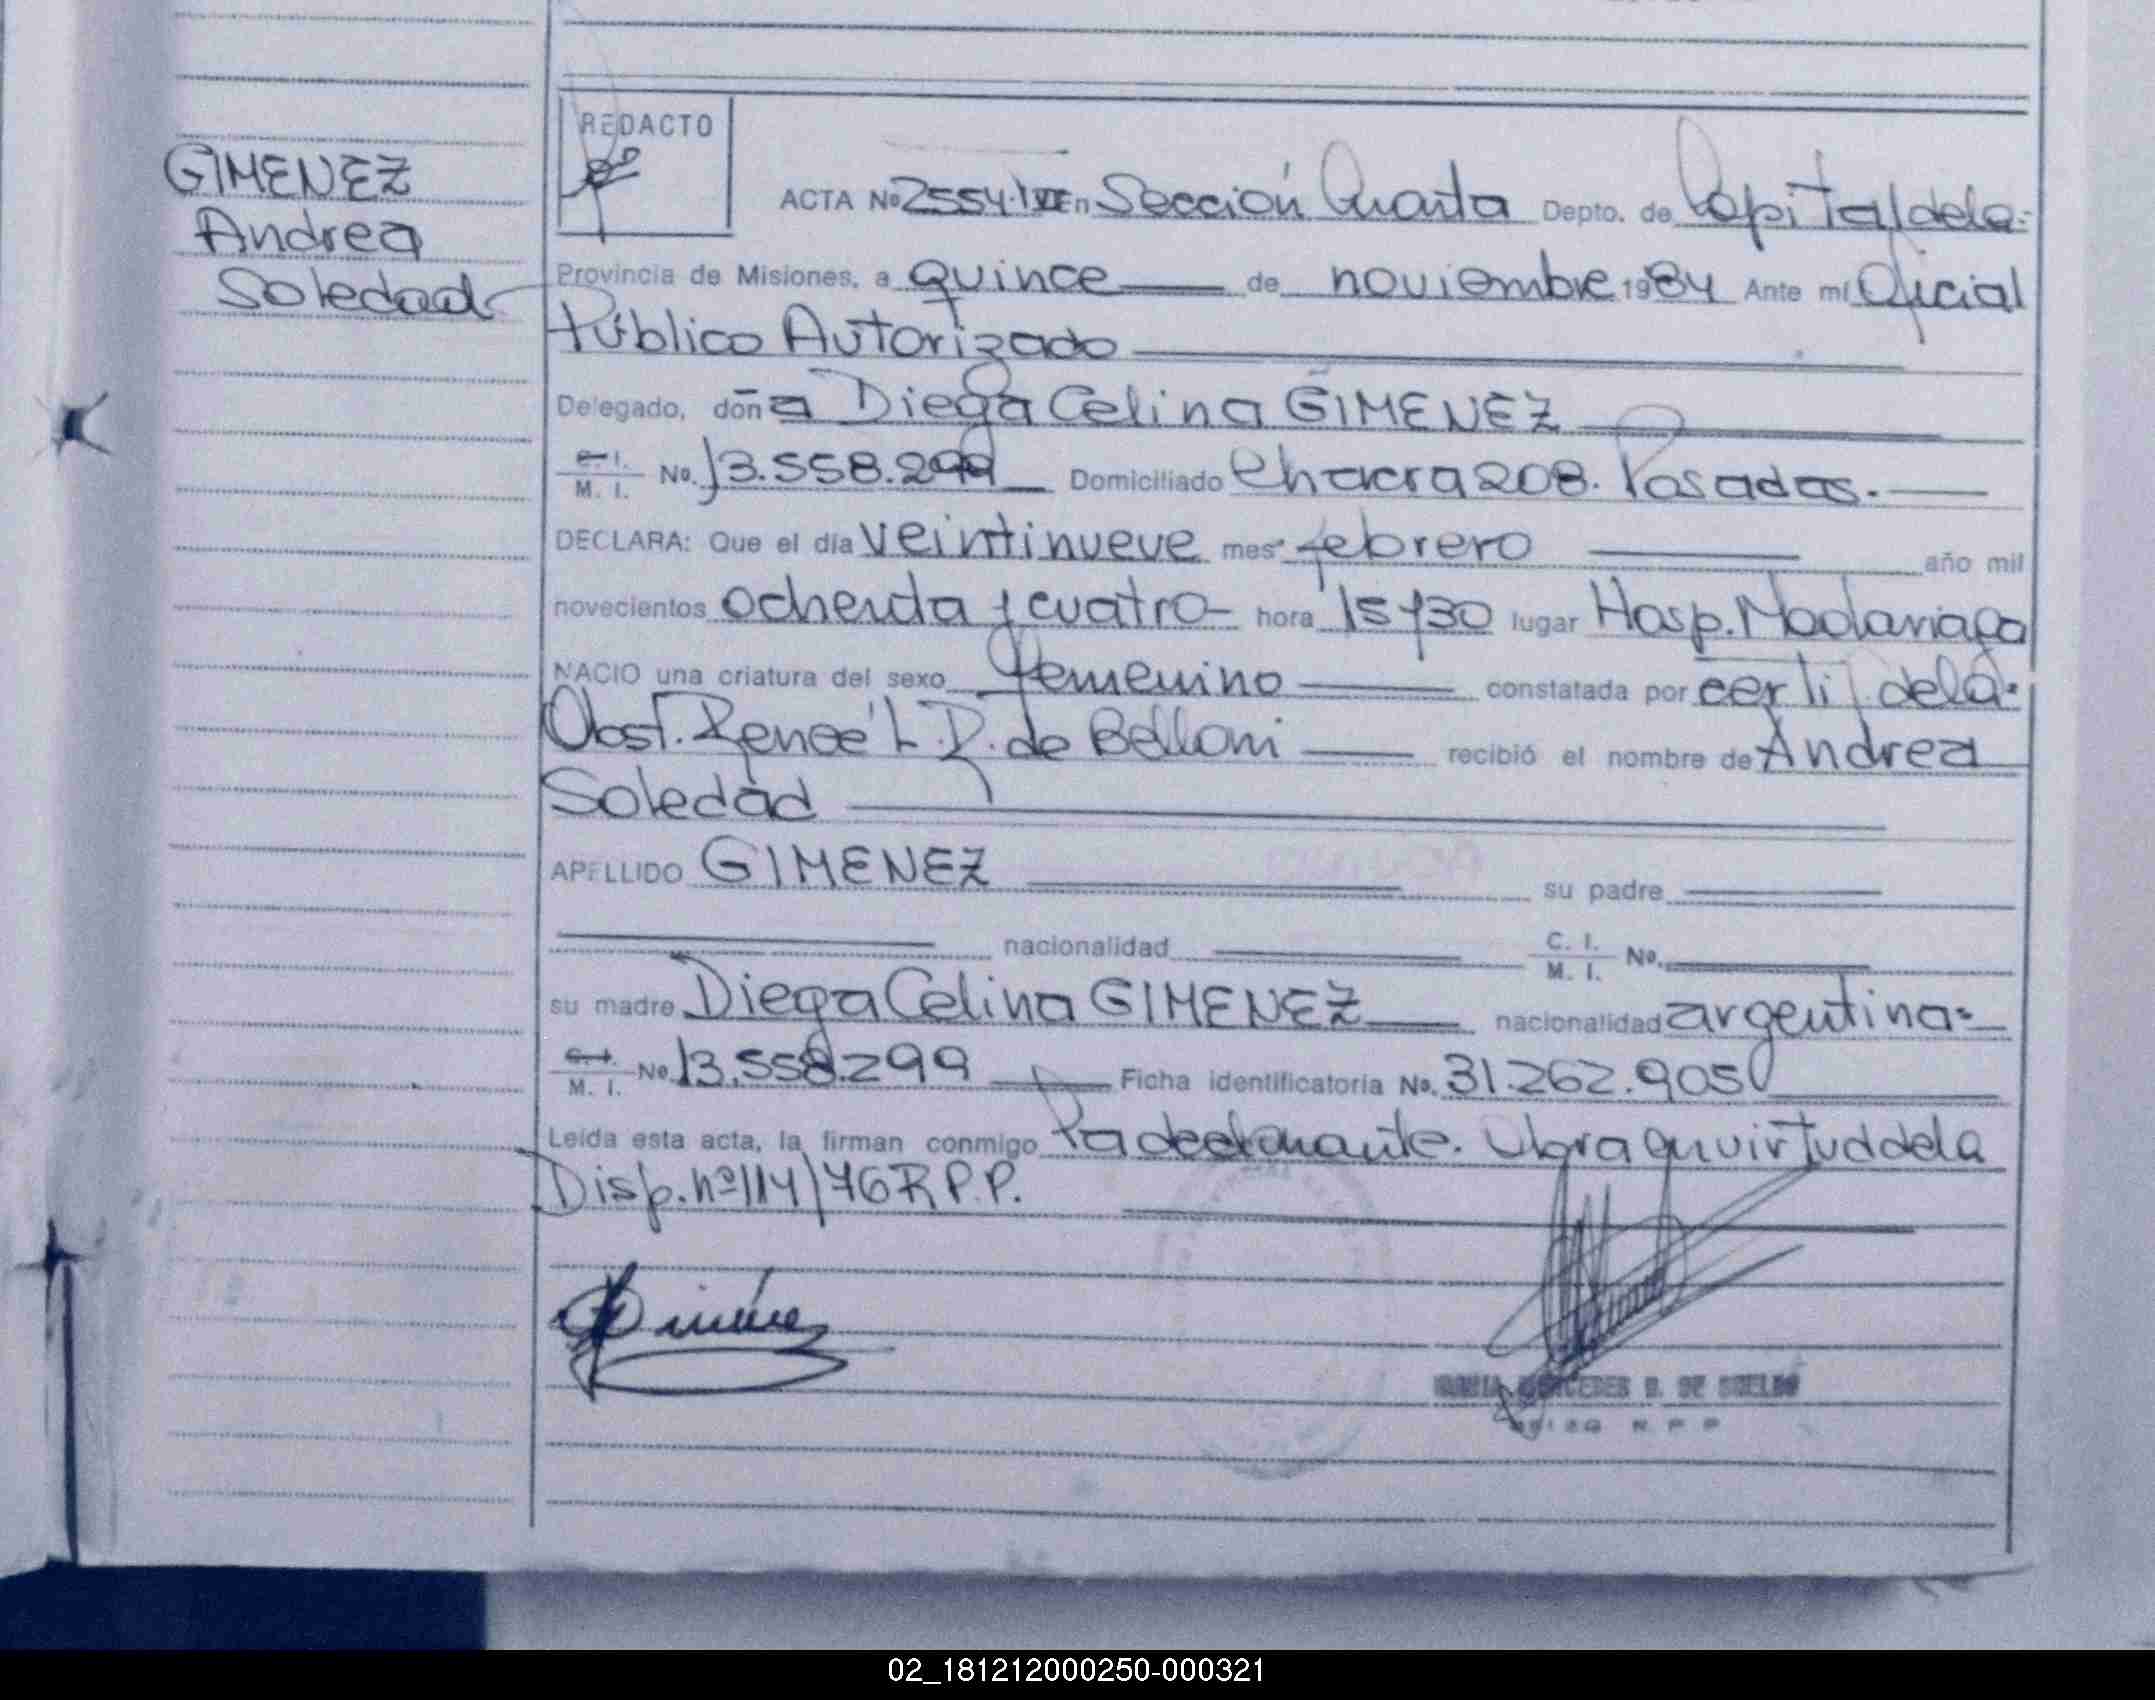 GIMENEZ
Andrea
Soledad
REDACTO
ACTA Nº 2554·IVE En Sección Cuarta Depto. de Capital de la-
Provincia de Misiones, a quince de noviembre 1984 Ante mí Oficial
Público Autorizado
Delegado, doña Diega Celina GIMENEZ
C. I.
M. I. No. 13.558.299 Domiciliado Chacra 208. Posadas.
DECLARA: Que el día veintinueve mes febrero año mil
novecientos ochenta y cuatro- hora 15 y 30 lugar Hosp. Madariaga
NACIO una criatura del sexo femenino constatada por certif. de la-
Obst. Reneé L. R. de Belloni recibió el nombre de Andrea
Soledad
APELLIDO GIMENEZ su padre
nacionalidad C. I.
M. I. No.
su madre Diega Celina GIMENEZ nacionalidad argentina-
C. I.
M. I. No. 13.558.299 Ficha identificatoria No. 31.262.905
Leída esta acta, la firman conmigo la declarante. Obra en virtud de la
Disp. nº 114/76 R.P.P.
MERCEDES DE
R P P
02_181212000250-000321